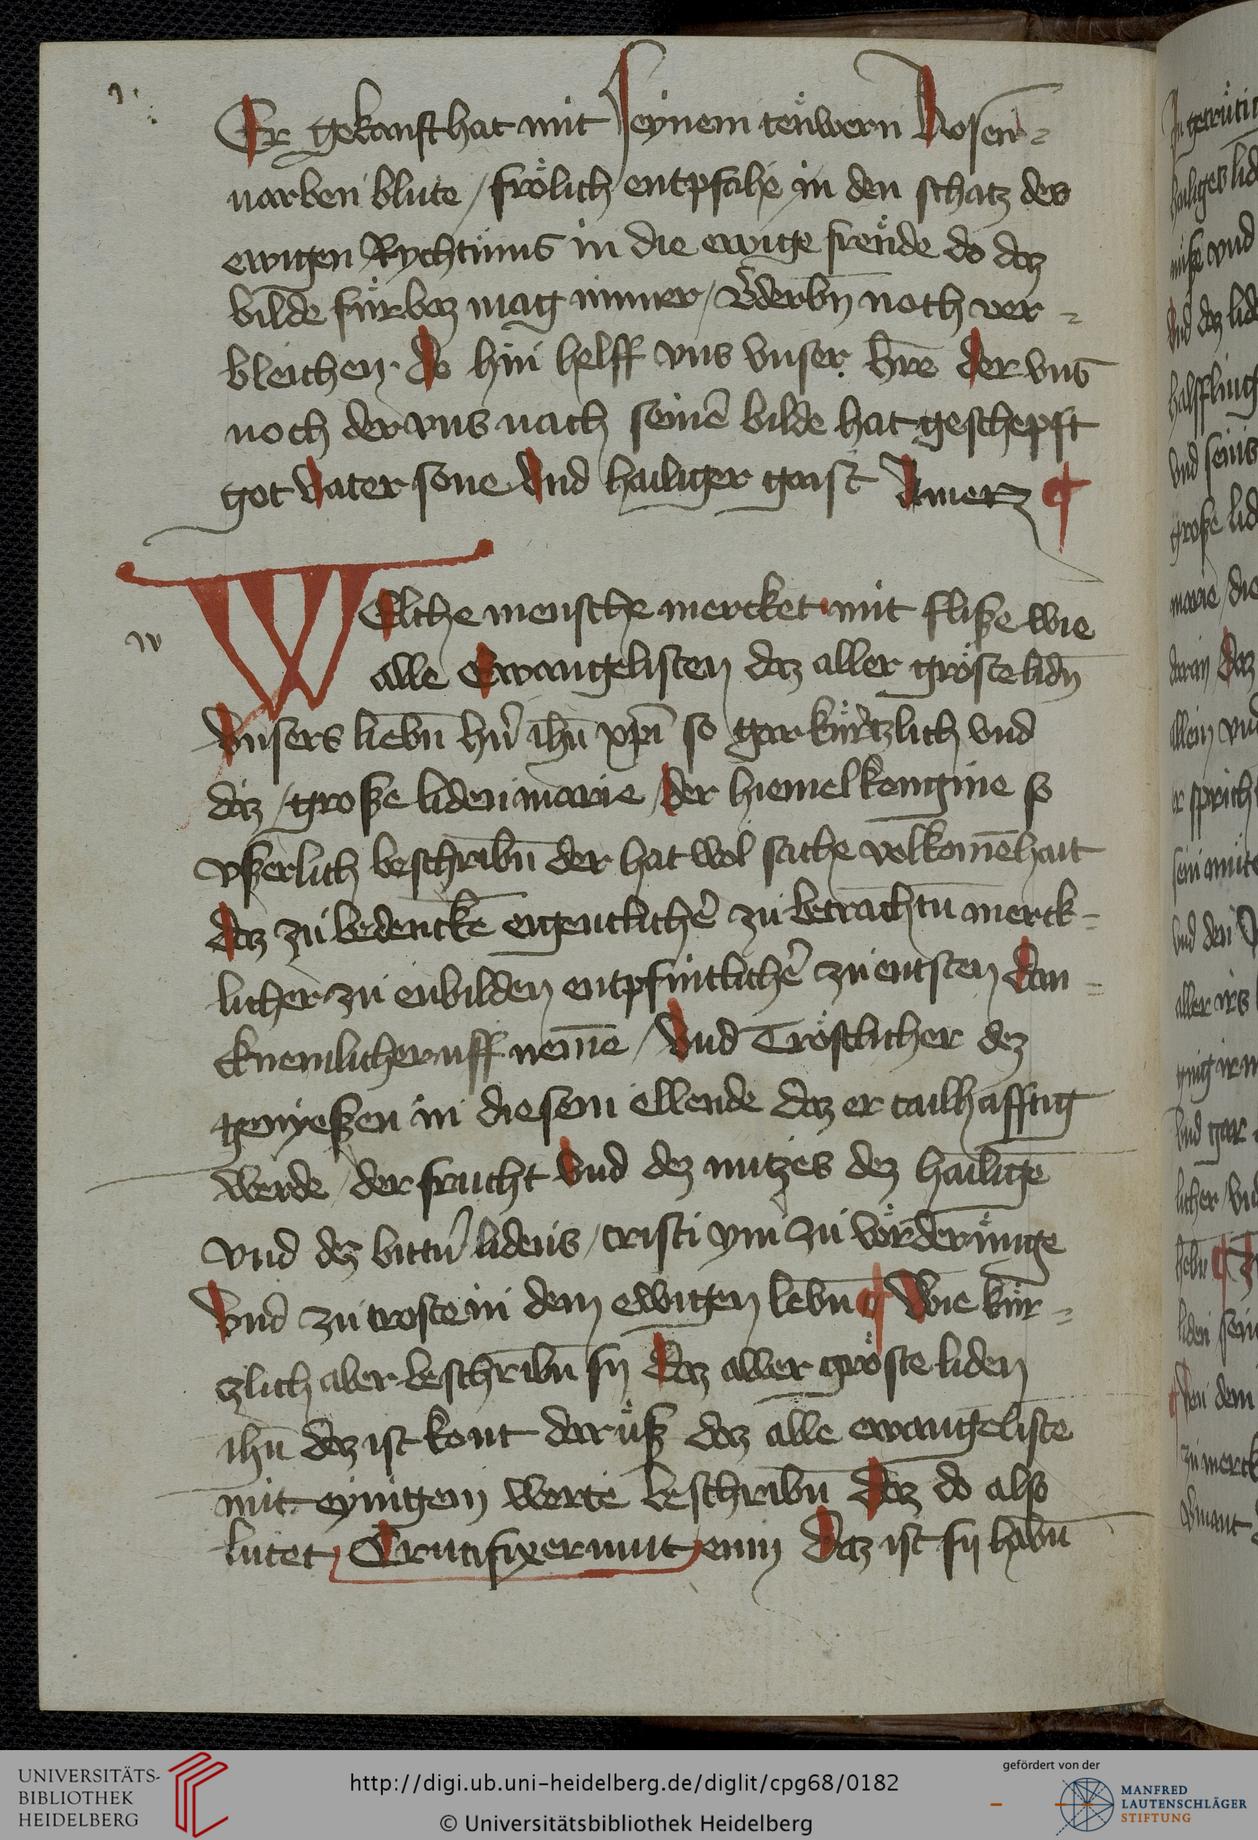 Er gekauft hat mit seynem teuͤwern Rosen=
varben blute / froͤlich entpfahe in den schatz des
ewigen Rychtums in die ewige freuͤde do daz
bilde fuͤrbaz mag nimer / v̓derbn̄ noch ver=
bleichen. do hin helff vns vnser h̄re der vns
noch der vns nach seinē bilde hat geschepft
got vater sone vnd hailiger gaist Amen ¶
WElche mensche mercket mit flisze wie
alle Ewangelisten daz aller groͤste lidn̄
vnsers liebn̄ hr̄n ihū xp̄i so gar kuͤrtzlich vnd
daz / grosze liden marie / der hiemelkongine so
vszerlich beschribn̄ der hat wol sache volkomēhait
daz zu bedenckē eigentlichē zu betrachtn̄ merck=
licher zu einbilden entpfintlichē zu entsten dan=
cknemlicher uff nemē / vnd Troͤstlicher dez
genyeszen in diesem ellende daz er tailhafftig
werde / der frucht vnd dez nutzes dez hailigē
vnd dez bittn̄ lidens / cristi ym zu voͤrderunge
vnd zu troste in dem ewigen lebn̄ ¶ Wie kuͤr=
zlich aber beschribn̄ sy daz aller groͤste liden
ihū daz ist kont daruͤsz daz alle ewangeliste
mit eynigem werte beschribn̄ daz do also
lutet Crucifixerunt eum Daz ist sy habn̄
UNIVERSITÄTS-
BIBLIOTHEK
HEIDELBERG
http://digi.ub.uni-heidelberg.de/diglit/cpg68/0182
© Universitätsbibliothek Heidelberg
gefördert von der
MANFRED
LAUTENSCHLÄGER
STIFTUNG